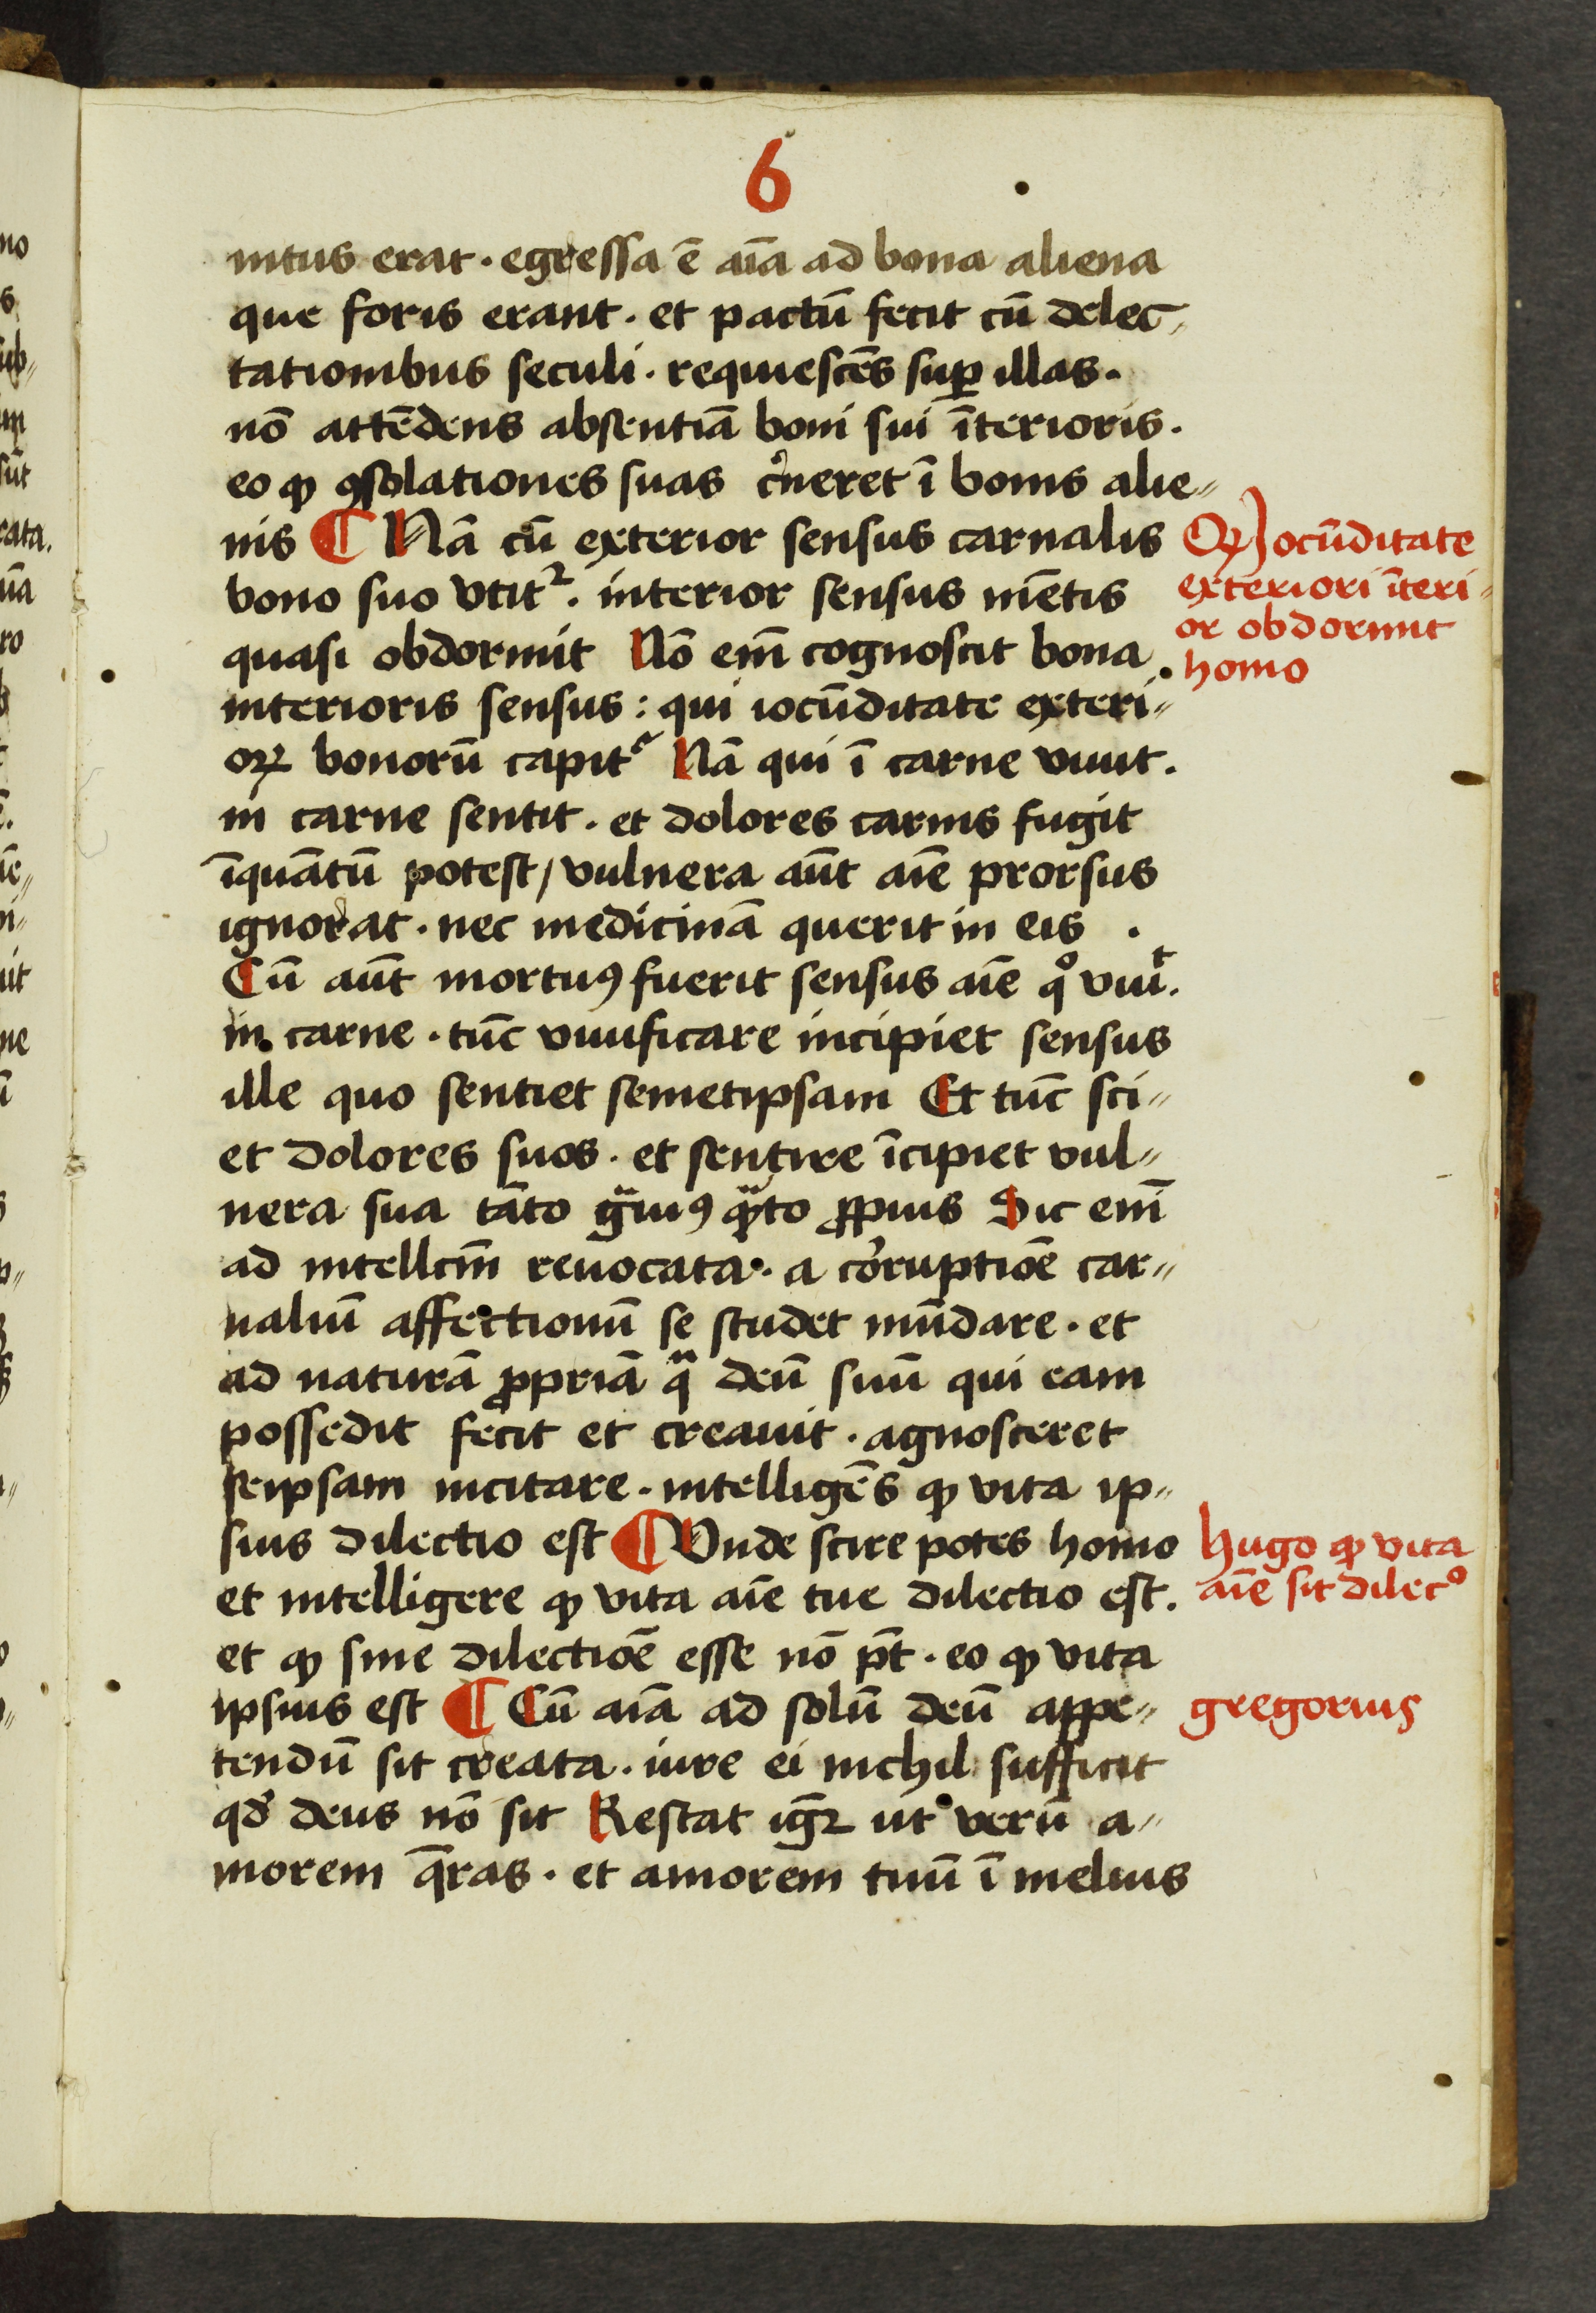 6
intus erat · egressa ē aīa ad bona aliena
que foris erant · et pactū fecit cū delec-
tationibus seculi · requiescēs suꝑ illas ·
nō attēdens absentiā boni sui īterioris ·
eo ꝙ ꝯsolationes suas c'neret ī bonis alie-
nis ¶ Nā cū exterior sensus carnalis
bono suo vtit᷑ · interior sensus mētis
quasi obdormit Nō em̄ cognoscit bona
interioris sensus : qui iocūditate exteri-
oꝝ bonorū capit᷑ Nā qui ī carne viuit ·
in carne sentit · et dolores carnis fugit
īquātū potest / vulnera aūt aīe prorsus
ignorat · nec medicinā querit in eis ·
Cū aūt mortuꝰ fuerit sensus aīe qͦ viuͭ ·
in carne · tūc viuificare incipiet sensus
ille quo sentiet semetipsam Et tūc sci-
et dolores suos · et sentire īcipiet vul-
nera sua tāto gᵃuiꝰ qᵃto ꝓpius Sic em̄
ad intellcm̄ reuocata · a corruptiōe car-
naliū affectionū se studet mūdare · et
ad naturā ꝓpriā qᵃ deū suū qui eam
possedit fecit et creauit · agnosceret
seipsam incitare · intelligēs ꝙ vita ip-
sius dilectio est ¶ Vnde scire potes homo
et intelligere ꝙ vita aīe tue dilectio est ·
et ꝙ sine dilectiōe esse nō pt̄ · eo ꝙ vita
ipsius est ¶ Cū aīa ad solū deū appe-
tendū sit creata · iure ei nichil sufficit
qd' deus nō sit Restat igr̄ ut verū a-
morem q̄ras · et amorem tuū ī melius
Qꝝ Jocūditate
exteriori īteri-
or obdormit
homo
Hugo ꝙ vita
aīe sit dilecͦ
gregorius